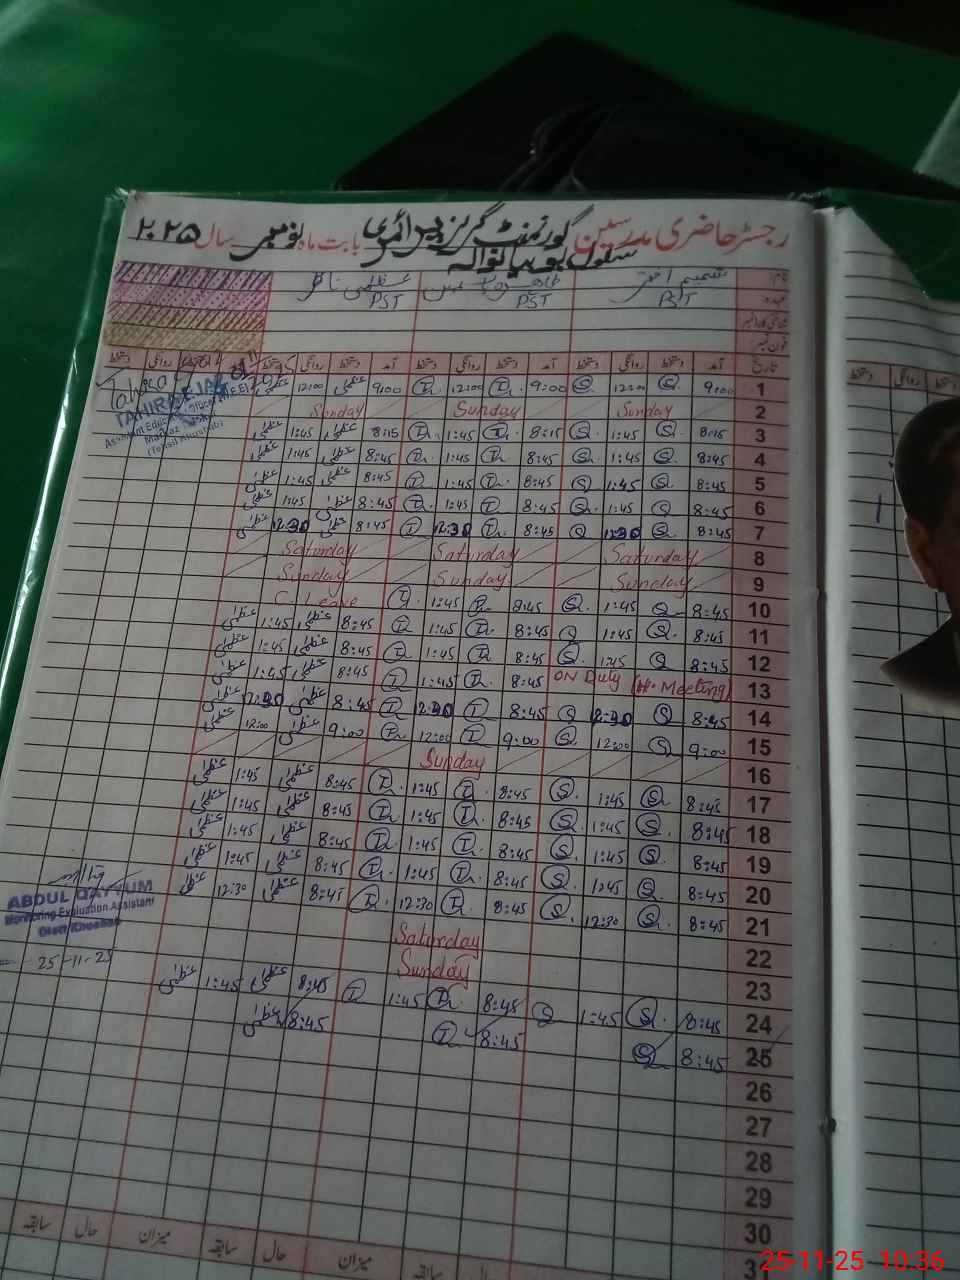 رجسٹر حاضری مدرسین گورنمنٹ گرلز پرائمری بابت ماہ نومبر سال ۲۰۲۵
سکول
نام شمیم اختر
عہدہ PST PST PST
شناختی کارڈ نمبر
فون نمبر
تاریخ آمد دستخط روانگی دستخط آمد دستخط روانگی دستخط آمد دستخط روانگی دستخط
1 9:00 12:00 9:00 12:00 9:00 عظمیٰ 12:00 عظمیٰ
TAHIR
Assistant Edu
Markaz
2 Sunday Sunday Sunday
3 8:15 1:45 8:15 1:45 8:15 عظمیٰ 1:45 عظمیٰ
4 8:45 1:45 8:45 1:45 8:45 عظمیٰ 1:45 عظمیٰ
5 8:45 1:45 8:45 1:45 8:45 عظمیٰ 1:45 عظمیٰ
6 8:45 1:45 8:45 1:45 8:45 عظمیٰ 1:45 عظمیٰ
7 8:45 12:30 8:45 12:30 8:45 عظمیٰ 12:30 عظمیٰ
8 Saturday Saturday Saturday
9 Sunday Sunday Sunday
10 8:45 1:45 8:45 1:45 C. Leave
11 8:45 1:45 8:45 1:45 8:45 عظمیٰ 1:45 عظمیٰ
12 8:45 1:45 8:45 1:45 8:45 عظمیٰ 1:45 عظمیٰ
13 ON Duty Meeting) 8:45 1:45 8:45 عظمیٰ 1:45 عظمیٰ
14 8:45 12:30 8:45 12:30 8:45 عظمیٰ 12:30 عظمیٰ
15 9:00 12:00 9:00 12:00 9:00 عظمیٰ 12:00 عظمیٰ
16 Sunday
17 8:45 1:45 8:45 1:45 8:45 عظمیٰ 1:45 عظمیٰ
18 8:45 1:45 8:45 1:45 8:45 عظمیٰ 1:45 عظمیٰ
19 8:45 1:45 8:45 1:45 8:45 عظمیٰ 1:45 عظمیٰ
20 8:45 1:45 8:45 1:45 8:45 عظمیٰ 1:45 عظمیٰ
21 8:45 12:30 8:45 12:30 8:45 عظمیٰ 12:30 عظمیٰ
ABDUL QAYYUM
Monitoring Evaluation Assistant
Distt Khushab
25-11-25
22 Saturday
23 Sunday
24 8:45 1:45 8:45 1:45 8:45 عظمیٰ 1:45 عظمیٰ
25 8:45 8:45 8:45 عظمیٰ
26
27
28
29
30
میزان حال سابقہ میزان حال سابقہ
دستخط روانگی دستخط
25-11-25 10:36